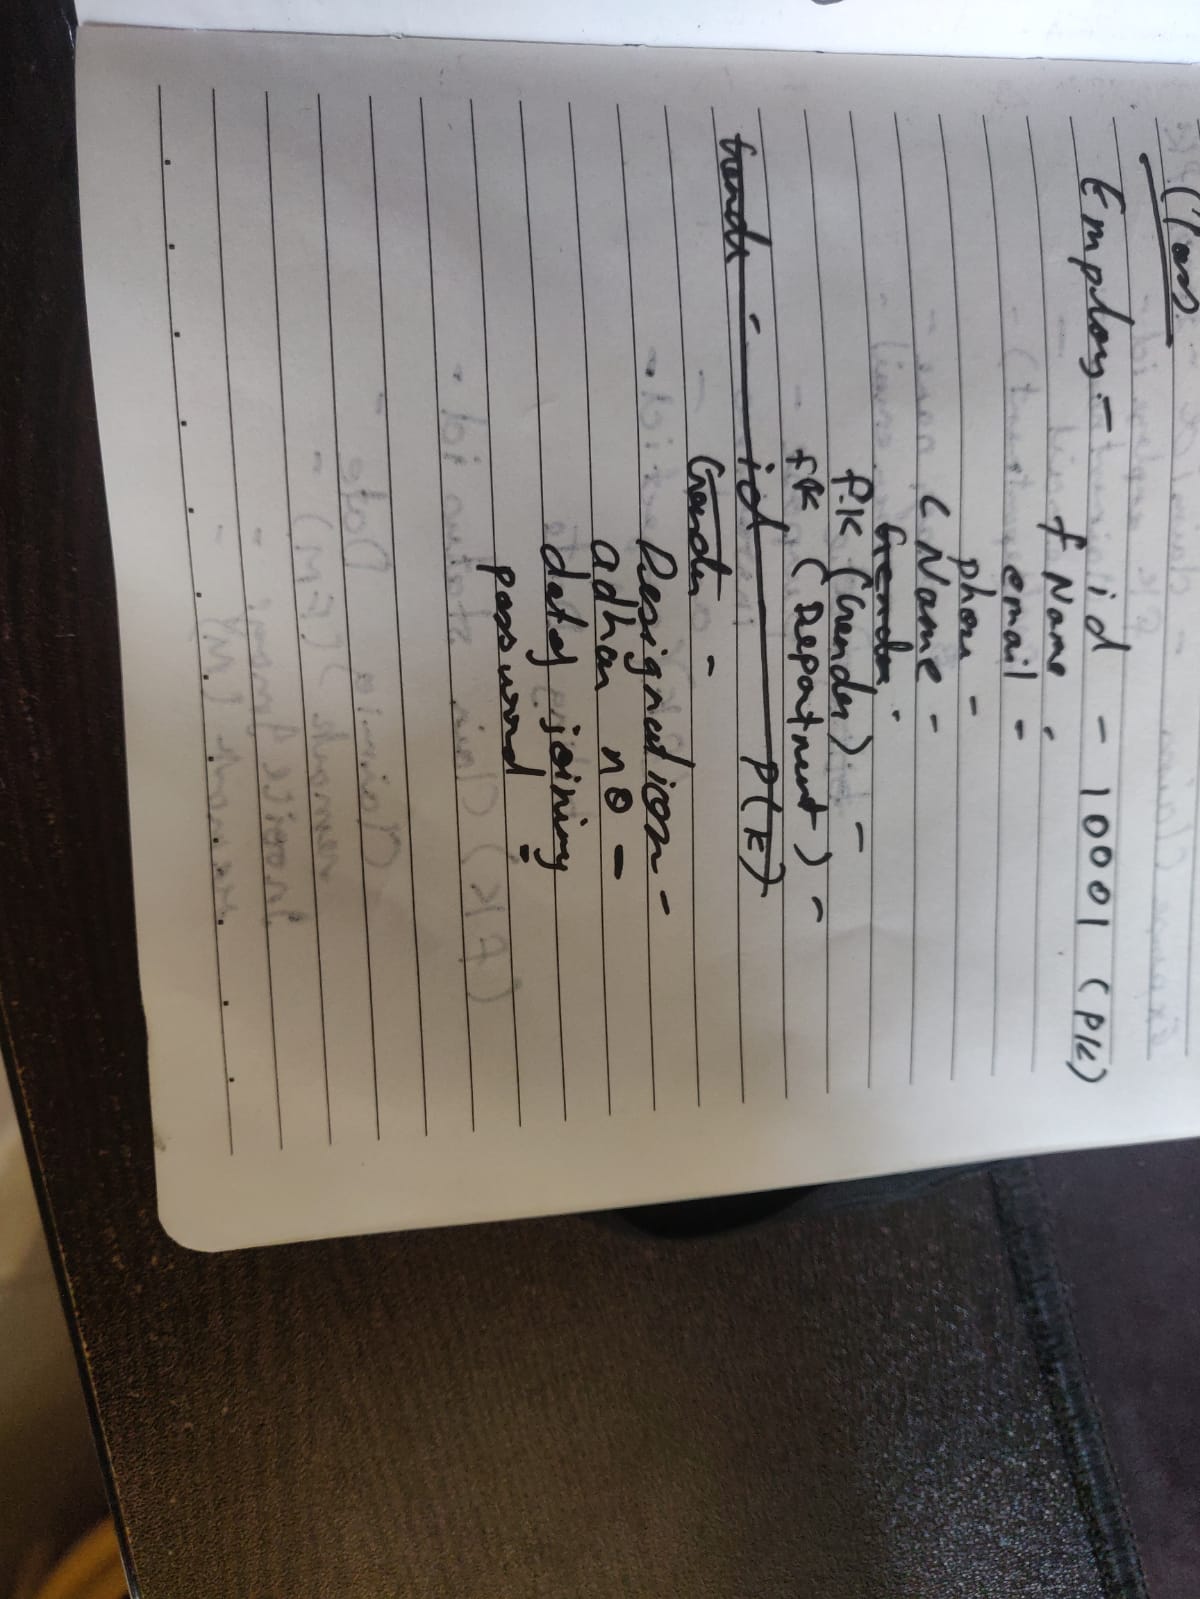 Class
Employ - id - 10001 (PK)
f Name -
email -
phon -
L Name -
Gender -
F.K (Gender) -
FK (Department) -
id P(K)
Gender -
Designation -
adhar no -
date joining
password -